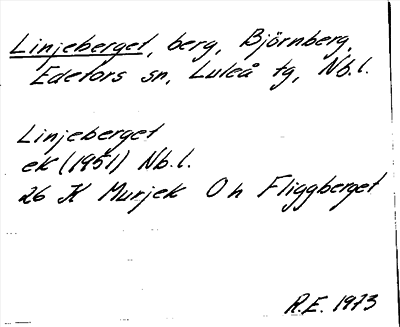 Linjeberget, berg, Björnberg,
Edefors sn, Luleå tg, Nb.l.
Linjeberget
ek (1951) Nb.l.
26 K Murjek Oh Fliggberget
R.E. 1973